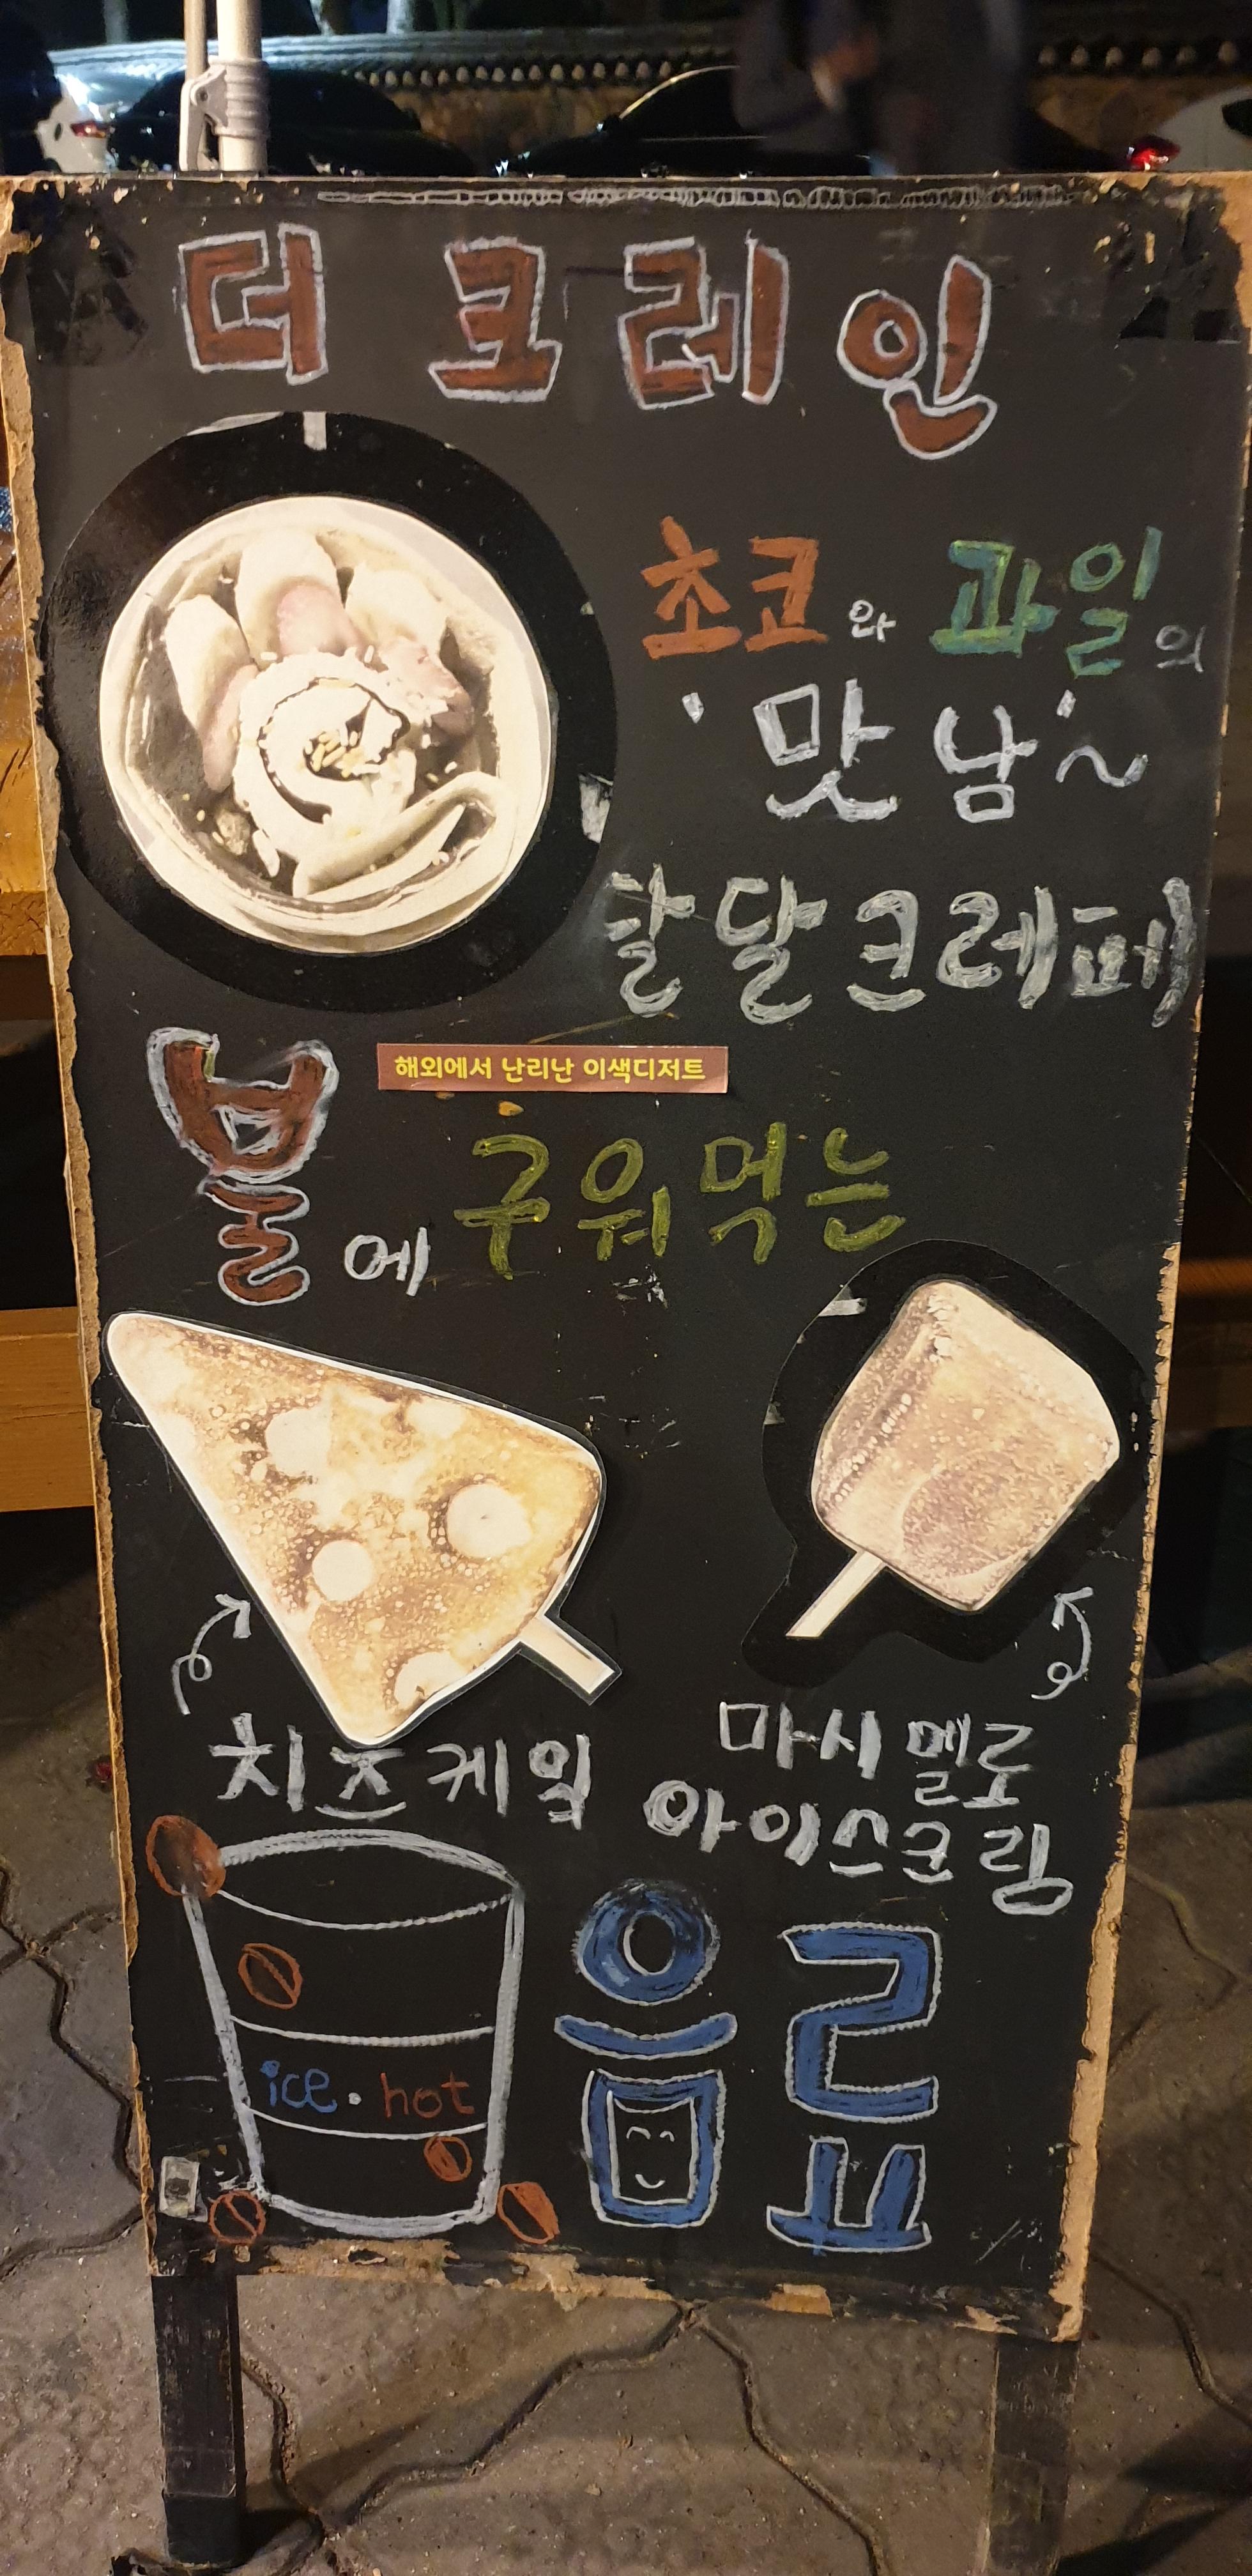 더 크레인
초코와 과일의
'맛남'~
달달크레페
해외에서 난리난 이색디저트
불에 구워먹는
치즈케익
마시멜로
아이스크림
ice · hot
음료